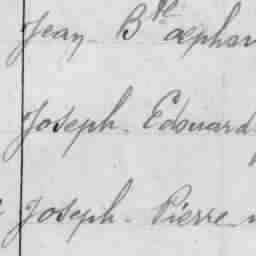 Jean Bte Alphon
Joseph Edouard
Joseph Pierre